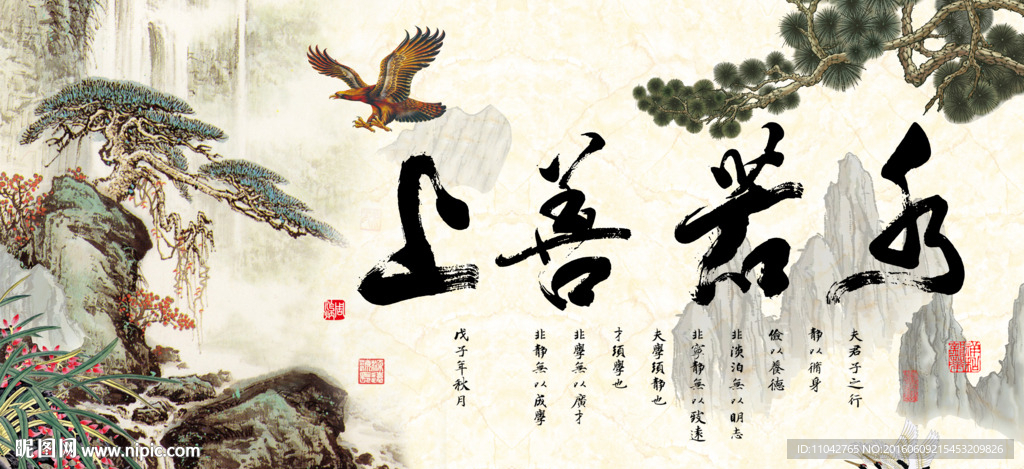 上善若水
夫君子之行
静以脩身
儉以養德
非淡泊無以明志
非寧靜無以致遠
夫學須静也
才須學也
非學無以廣才
非静無以成學
戊子年秋月
昵图网 www.nipic.com
ID:11042765 NO:20160609215453209826